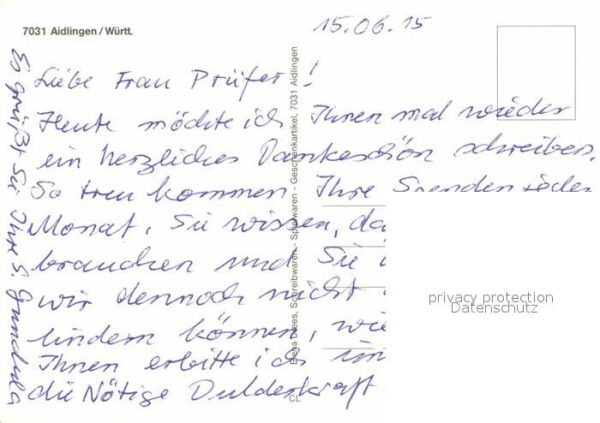 7031 Aidlingen/Württ.
15.06.15
Liebe Frau Prüfer!
Heute möchte ich Ihnen mal wieder
ein herzliches Dankeschön schreiben.
So treu kommen Ihre Spenden jeden
Monat. Sie wissen, da
brauchen und Sie
wir dennoch nicht
lindern können, wie
Ihnen erbitte ich
die Nötige Dulderkraft
Es grüßt Sie Ihre S. Gundula
Schreibwaren - Spielwaren - Geschenkartikel, 7031 Aidlingen
CL
privacy protection
Datenschutz